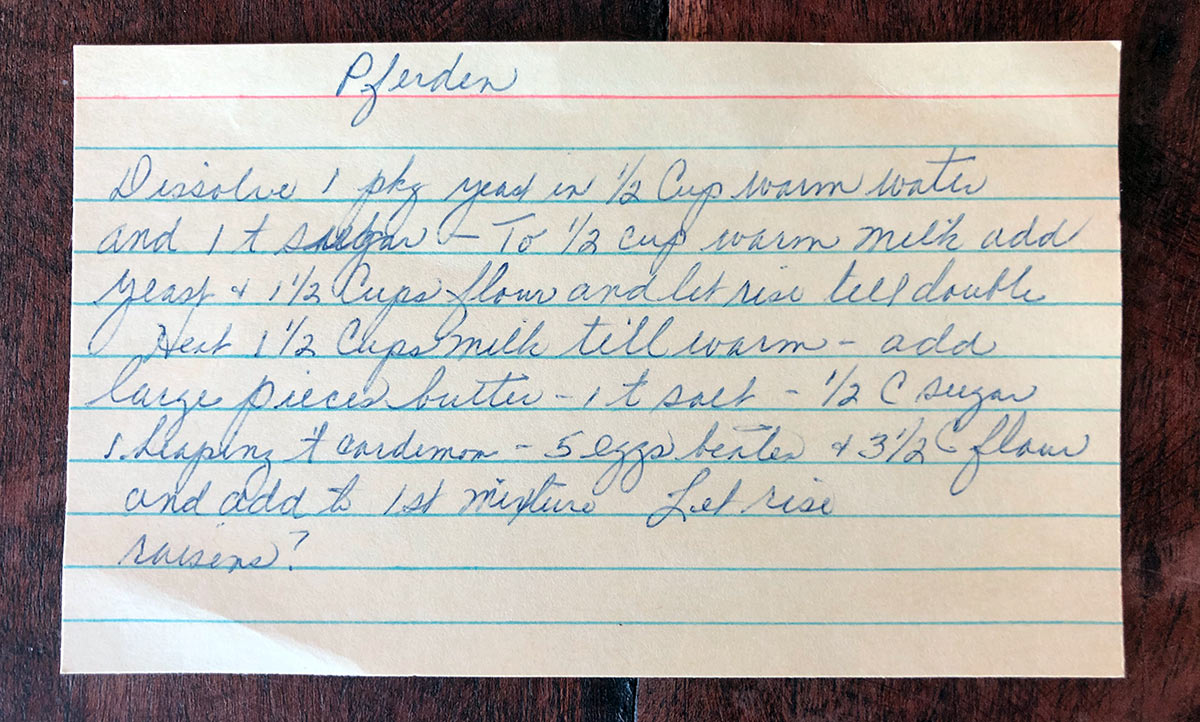 Pferden
Dissolve 1 pkg yeast in 1/2 Cup warm water
and 1 t sugar – To 1/2 cup warm milk add
yeast + 1 1/2 Cups flour and let rise till double
Heat 1 1/2 Cups milk till warm – add
large pieces butter – 1 t salt – 1/2 C sugar
1 heaping t cardemon – 5 eggs beaten + 3 1/2 C flour
and add to 1st mixture Let rise
raisins?